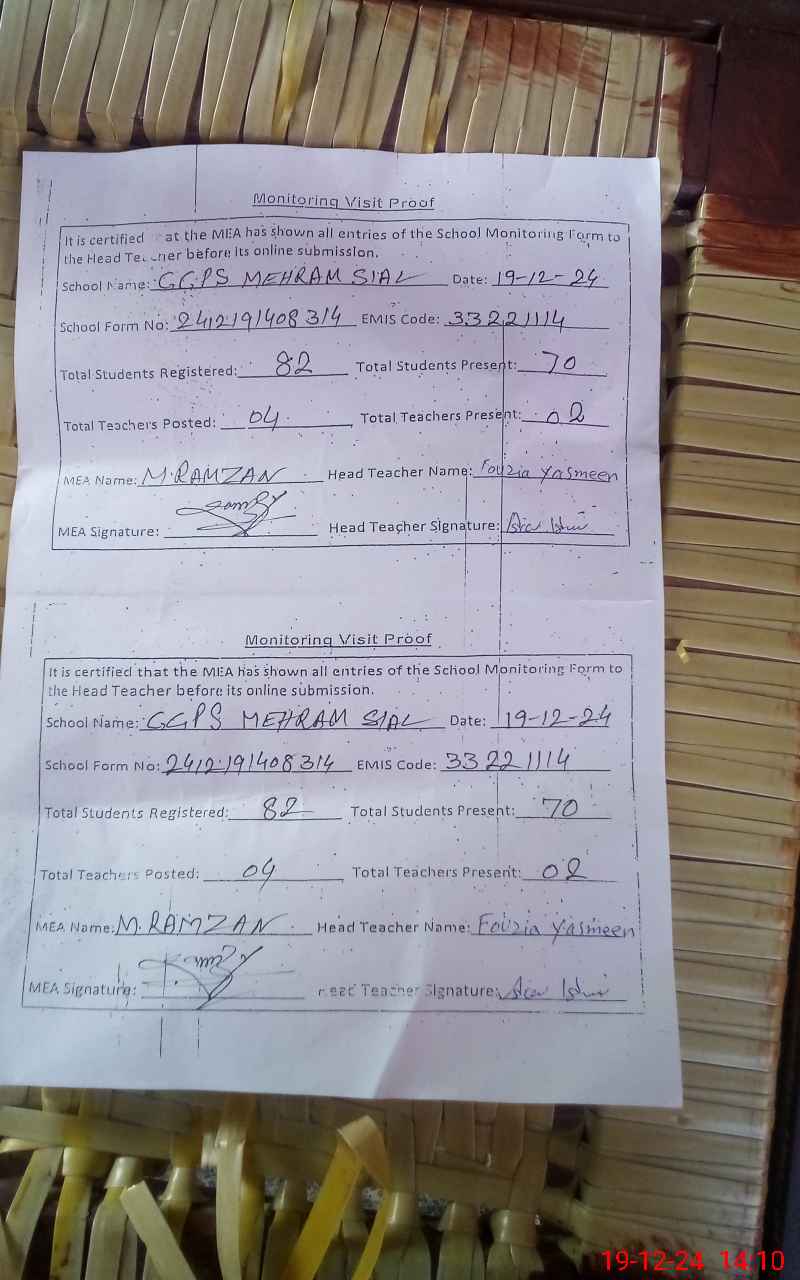 Monitoring Visit Proof
It is certified at the MEA has shown all entries of the School Monitoring Form to
the Head Teacher before its online submission.
School Name: GGPS MEHRAM SIAL Date: 19-12-24
School Form No: 2412191408314 EMIS Code: 33221114
Total Students Registered: 82 Total Students Present: 70
Total Teachers Posted: 04 Total Teachers Present: 02
MEA Name: M.RAMZAN Head Teacher Name: Fouzia Yasmeen
MEA Signature: Head Teacher Signature:
Monitoring Visit Proof
It is certified that the MEA has shown all entries of the School Monitoring Form to
the Head Teacher before its online submission.
School Name: GGPS MEHRAM SIAL Date: 19-12-24
School Form No: 2412191408314 EMIS Code: 33221114
Total Students Registered: 82 Total Students Present: 70
Total Teachers Posted: 04 Total Teachers Present: 02
MEA Name: M.RAMZAN Head Teacher Name: Fouzia Yasmeen
MEA Signature: Head Teacher Signature:
19-12-24 14:10